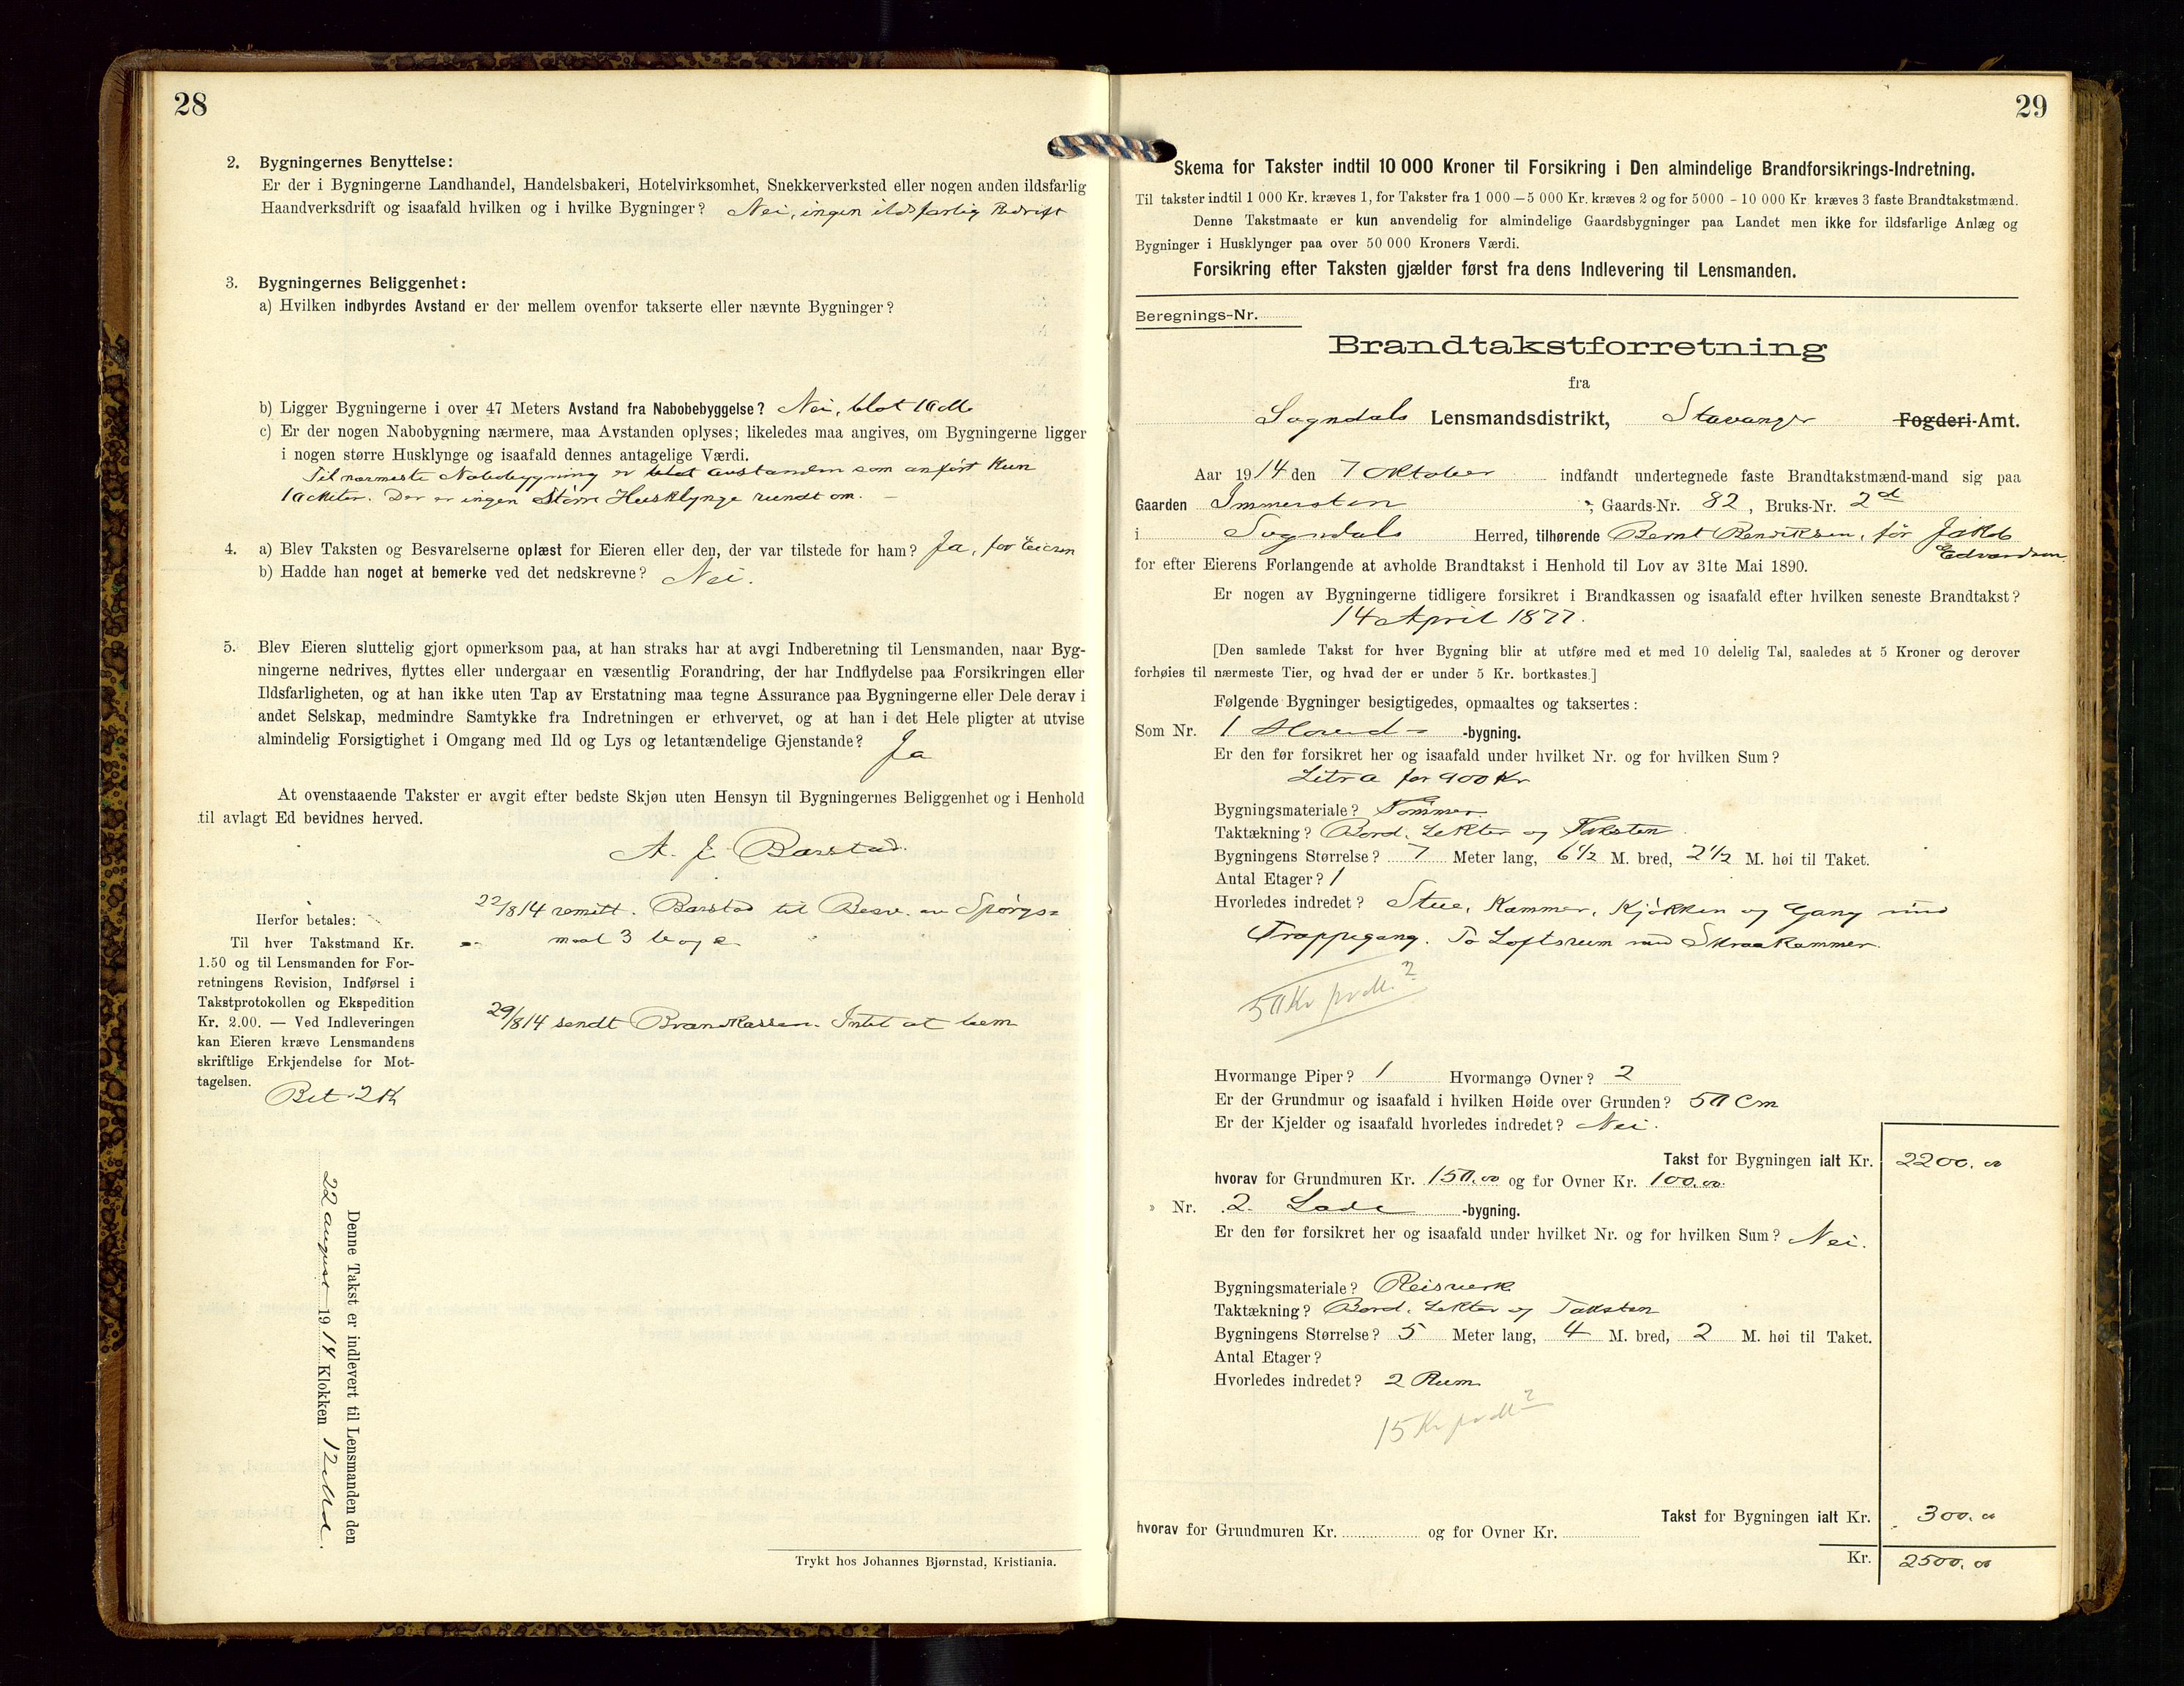 28
2. Bygningernes Benyttelse:
Er der i Bygningerne Landhandel, Handelsbakeri, Hotelvirksomhet, Snekkerverksted eller nogen anden ildsfarlig
Haandverksdrift og isaafald hvilken og i hvilke Bygninger? Nei, ingen ildsfarlig Bedrift
3. Bygningernes Beliggenhet:
a) Hvilken indbyrdes Avstand er der mellem ovenfor takserte eller nævnte Bygninger?
b) Ligger Bygningerne i over 47 Meters Avstand fra Nabobebyggelse? Nei, blot 10 M
c) Er der nogen Nabobygning nærmere, maa Avstanden oplyses; likeledes maa angives, om Bygningerne ligger
i nogen større Husklynge og isaafald dennes antagelige Værdi.
Til nærmeste Nabobygning er blot avstanden som anført kun
10 Meter. Der er ingen Større Husklynge rundt om. —
4. a) Blev Taksten og Besvarelserne oplæst for Eieren eller den, der var tilstede for ham? Ja, for Eieren
b) Hadde han noget at bemerke ved det nedskrevne? Nei.
5. Blev Eieren sluttelig gjort opmerksom paa, at han straks har at avgi Indberetning til Lensmanden, naar Byg-
ningerne nedrives, flyttes eller undergaar en væsentlig Forandring, der har Indflydelse paa Forsikringen eller
Ildsfarligheten, og at han ikke uten Tap av Erstatning maa tegne Assurance paa Bygningerne eller Dele derav i
andet Selskap, medmindre Samtykke fra Indretningen er erhvervet, og at han i det Hele pligter at utvise
almindelig Forsigtighet i Omgang med Ild og Lys og letantændelige Gjenstande? Ja
At ovenstaaende Takster er avgit efter bedste Skjøn uten Hensyn til Bygningernes Beliggenhet og i Henhold
til avlagt Ed bevidnes herved.
A. J. Barstad.
22/8 14 remitt. Barstad til Besv. av Spørgs=
maal 3 b og c.
29/8 14 sendt Brandkassen. Intet at bem
Herfor betales:
Til hver Takstmand Kr.
1.50 og til Lensmanden for For-
retningens Revision, Indførsel i
Takstprotokollen og Ekspedition
Kr. 2.00. — Ved Indleveringen
kan Eieren kræve Lensmandens
skriftlige Erkjendelse for Mot-
tagelsen.
Bet 2 Kr
Denne Takst er indlevert til Lensmanden den
22 august 1914 Klokken 12 Md.
Trykt hos Johannes Bjørnstad, Kristiania.
29
Skema for Takster indtil 10 000 Kroner til Forsikring i Den almindelige Brandforsikrings-Indretning.
Til takster indtil 1 000 Kr. kræves 1, for Takster fra 1 000 — 5 000 Kr. kræves 2 og for 5000 - 10 000 Kr. kræves 3 faste Brandtakstmænd.
Denne Takstmaate er kun anvendelig for almindelige Gaardsbygninger paa Landet men ikke for ildsfarlige Anlæg og
Bygninger i Husklynger paa over 50 000 Kroners Værdi.
Forsikring efter Taksten gjælder først fra dens Indlevering til Lensmanden.
Beregnings-Nr.
Brandtakstforretning
fra
Sogndals Lensmandsdistrikt, Stavanger Fogderi-Amt.
Aar 1914 den 7 Oktober indfandt undertegnede faste Brandtakstmænd-mand sig paa
Gaarden Immersten, Gaards-Nr. 82, Bruks-Nr. 2 d
i Sogndals Herred, tilhørende Bernt Bendiksen, før Jakob
Edvardsen
for efter Eierens Forlangende at avholde Brandtakst i Henhold til Lov av 31te Mai 1890.
Er nogen av Bygningerne tidligere forsikret i Brandkassen og isaafald efter hvilken seneste Brandtakst?
14 April 1877.
[Den samlede Takst for hver Bygning blir at utføre med et med 10 delelig Tal, saaledes at 5 Kroner og derover
forhøies til nærmeste Tier, og hvad der er under 5 Kr. bortkastes.]
Følgende Bygninger besigtigedes, opmaaltes og taksertes:
Som Nr. 1 Hoved- -bygning.
Er den før forsikret her og isaafald under hvilket Nr. og for hvilken Sum?
Litr a for 900 Kr
Bygningsmateriale? Tømmer.
Taktækning? Bord, Lekter og Taksten
Bygningens Størrelse? 7 Meter lang, 6 1/2 M. bred, 2 1/2 M. høi til Taket.
Antal Etager? 1
Hvorledes indredet? Stue, Kammer, Kjøkken og Gang med
Trappegang. To Loftsrum med Skraakammer.
50 Kr pr M.²
Hvormange Piper? 1 Hvormange Ovner? 2
Er der Grundmur og isaafald i hvilken Høide over Grunden? 50 Cm
Er der Kjelder og isaafald hvorledes indredet? Nei.
Takst for Bygningen ialt Kr. 2200.00
hvorav for Grundmuren Kr. 150.00 og for Ovner Kr. 100.00
» Nr. 2. Lade -bygning.
Er den før forsikret her og isaafald under hvilket Nr. og for hvilken Sum? Nei.
Bygningsmateriale? Reisverk
Taktækning? Bord, Lekter og Taksten
Bygningens Størrelse? 5 Meter lang, 4 M. bred, 2 M. høi til Taket.
Antal Etager?
Hvorledes indredet? 2 Rum
15 Kr pr M²
Takst for Bygningen ialt Kr. 300.00
hvorav for Grundmuren Kr. og for Ovner Kr.
Kr. 2500.00